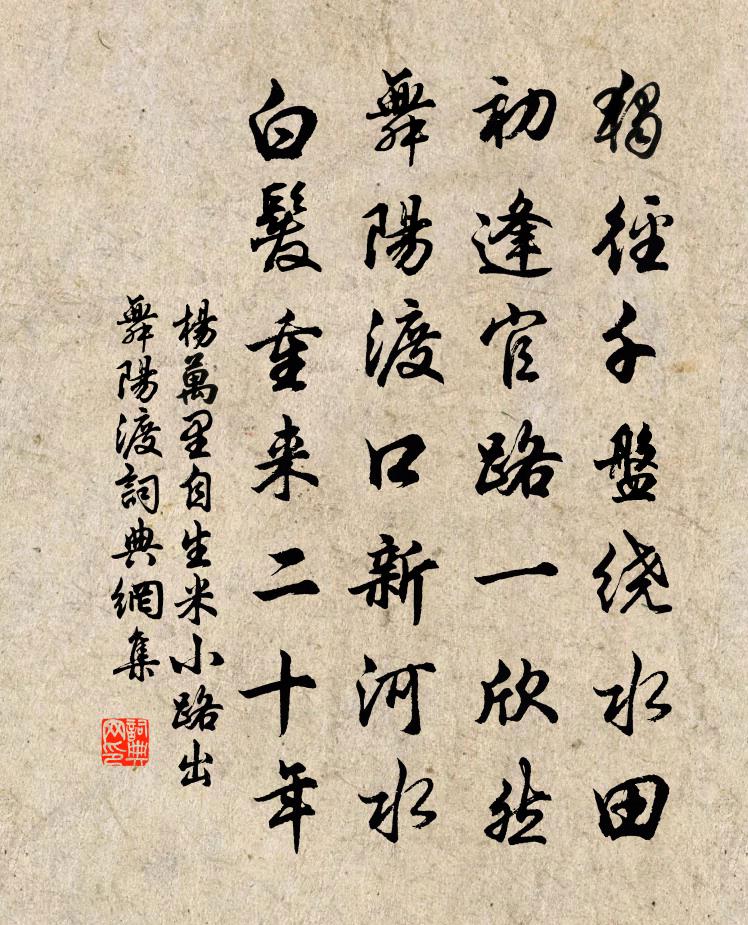 獨徑千盤绕水田
初逢官路一欣然
舞陽渡口新河水
白髮重来二十年
楊萬里自生米小路出
舞陽渡詞典網集
詞典网印